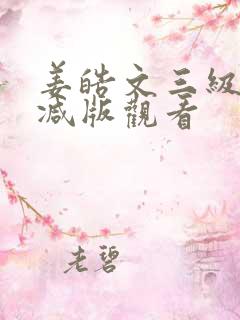 姜皓文三級
減版觀看
老碧